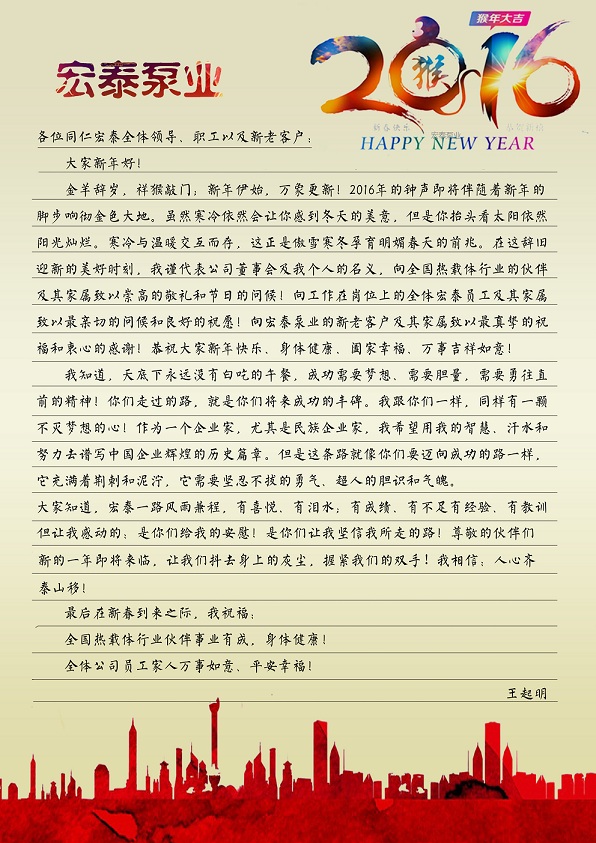 猴年大吉
2016
猴
宏泰泵业
新春快乐
宏泰泵业
HAPPY NEW YEAR
各位同仁宏泰全体领导、职工以及新老客户：
大家新年好！
金羊辞岁，祥猴敲门；新年伊始，万象更新！2016年的钟声即将伴随着新年的
脚步响彻金色大地。虽然寒冷依然会让你感到冬天的美意，但是你抬头看太阳依然
阳光灿烂。寒冷与温暖交互而存，这正是傲雪寒冬孕育明媚春天的前兆。在这辞旧
迎新的美好时刻，我谨代表公司董事会及我个人的名义，向全国热载体行业的伙伴
及其家属致以崇高的敬礼和节日的问候！向工作在岗位上的全体宏泰员工及其家属
致以最亲切的问候和良好的祝愿！向宏泰泵业的新老客户及其家属致以最真挚的祝
福和衷心的感谢！恭祝大家新年快乐、身体健康、阖家幸福、万事吉祥如意！
我知道，天底下永远没有白吃的午餐，成功需要梦想、需要胆量，需要勇往直
前的精神！你们走过的路，就是你们将来成功的丰碑。我跟你们一样，同样有一颗
不灭梦想的心！作为一个企业家，尤其是民族企业家，我希望用我的智慧、汗水和
努力去谱写中国企业辉煌的历史篇章。但是这条路就像你们要迈向成功的路一样，
它充满着荆刺和泥泞，它需要坚忍不拔的勇气、超人的胆识和气魄。
大家知道，宏泰一路风雨兼程，有喜悦、有泪水；有成绩、有不足有经验、有教训
但让我感动的；是你们给我的安慰！是你们让我坚信我所走的路！尊敬的伙伴们
新的一年即将来临，让我们抖去身上的灰尘，握紧我们的双手！我相信：人心齐
泰山移！
最后在新春到来之际，我祝福：
全国热载体行业伙伴事业有成，身体健康！
全体公司员工家人万事如意、平安幸福！
王起明